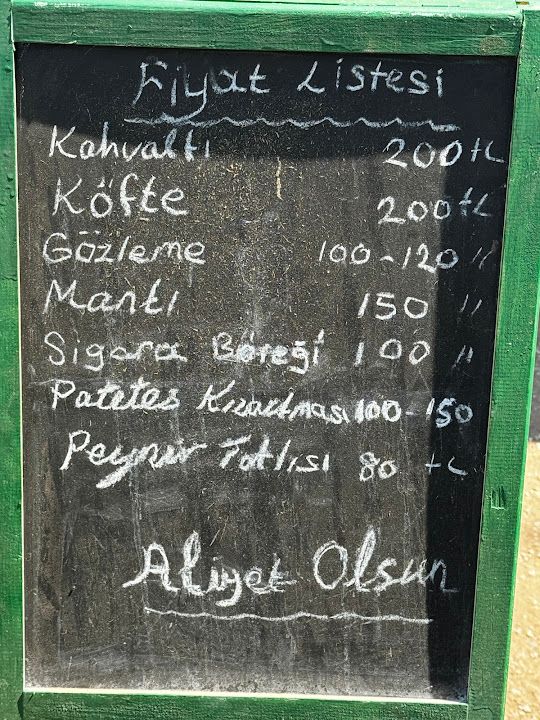 Fiyat Listesi
Kahvaltı 200 tL
Köfte 200 tL
Gözleme 100-120 "
Mantı 150 "
Sigara Böreği 100 "
Patates Kızartması 100-150
Peynir Tatlısı 80 tL
Afiyet Olsun